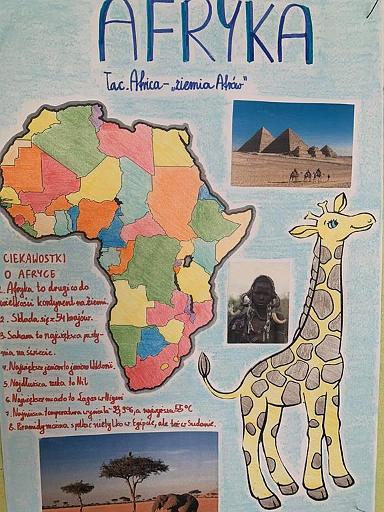 AFRYKA
łac. Africa - „ziemia Afrów"
CIEKAWOSTKI
O AFRYCE
1. Afryka to drugi co do
wielkości kontynent na ziemi.
2. Składa się z 54 krajów.
3. Sahara to największa pusty-
nia na świecie.
4. Największe jezioro to jezioro Wiktorii.
5. Najdłuższa rzeka to Nil
6. Największe miasto to Lagos w Nigerii
7. Najniższa temperatura wynosiła -23,9°C, a najwyższa 55°C
8. Piramidy można spotkać nie tylko w Egipcie, ale też w Sudanie.